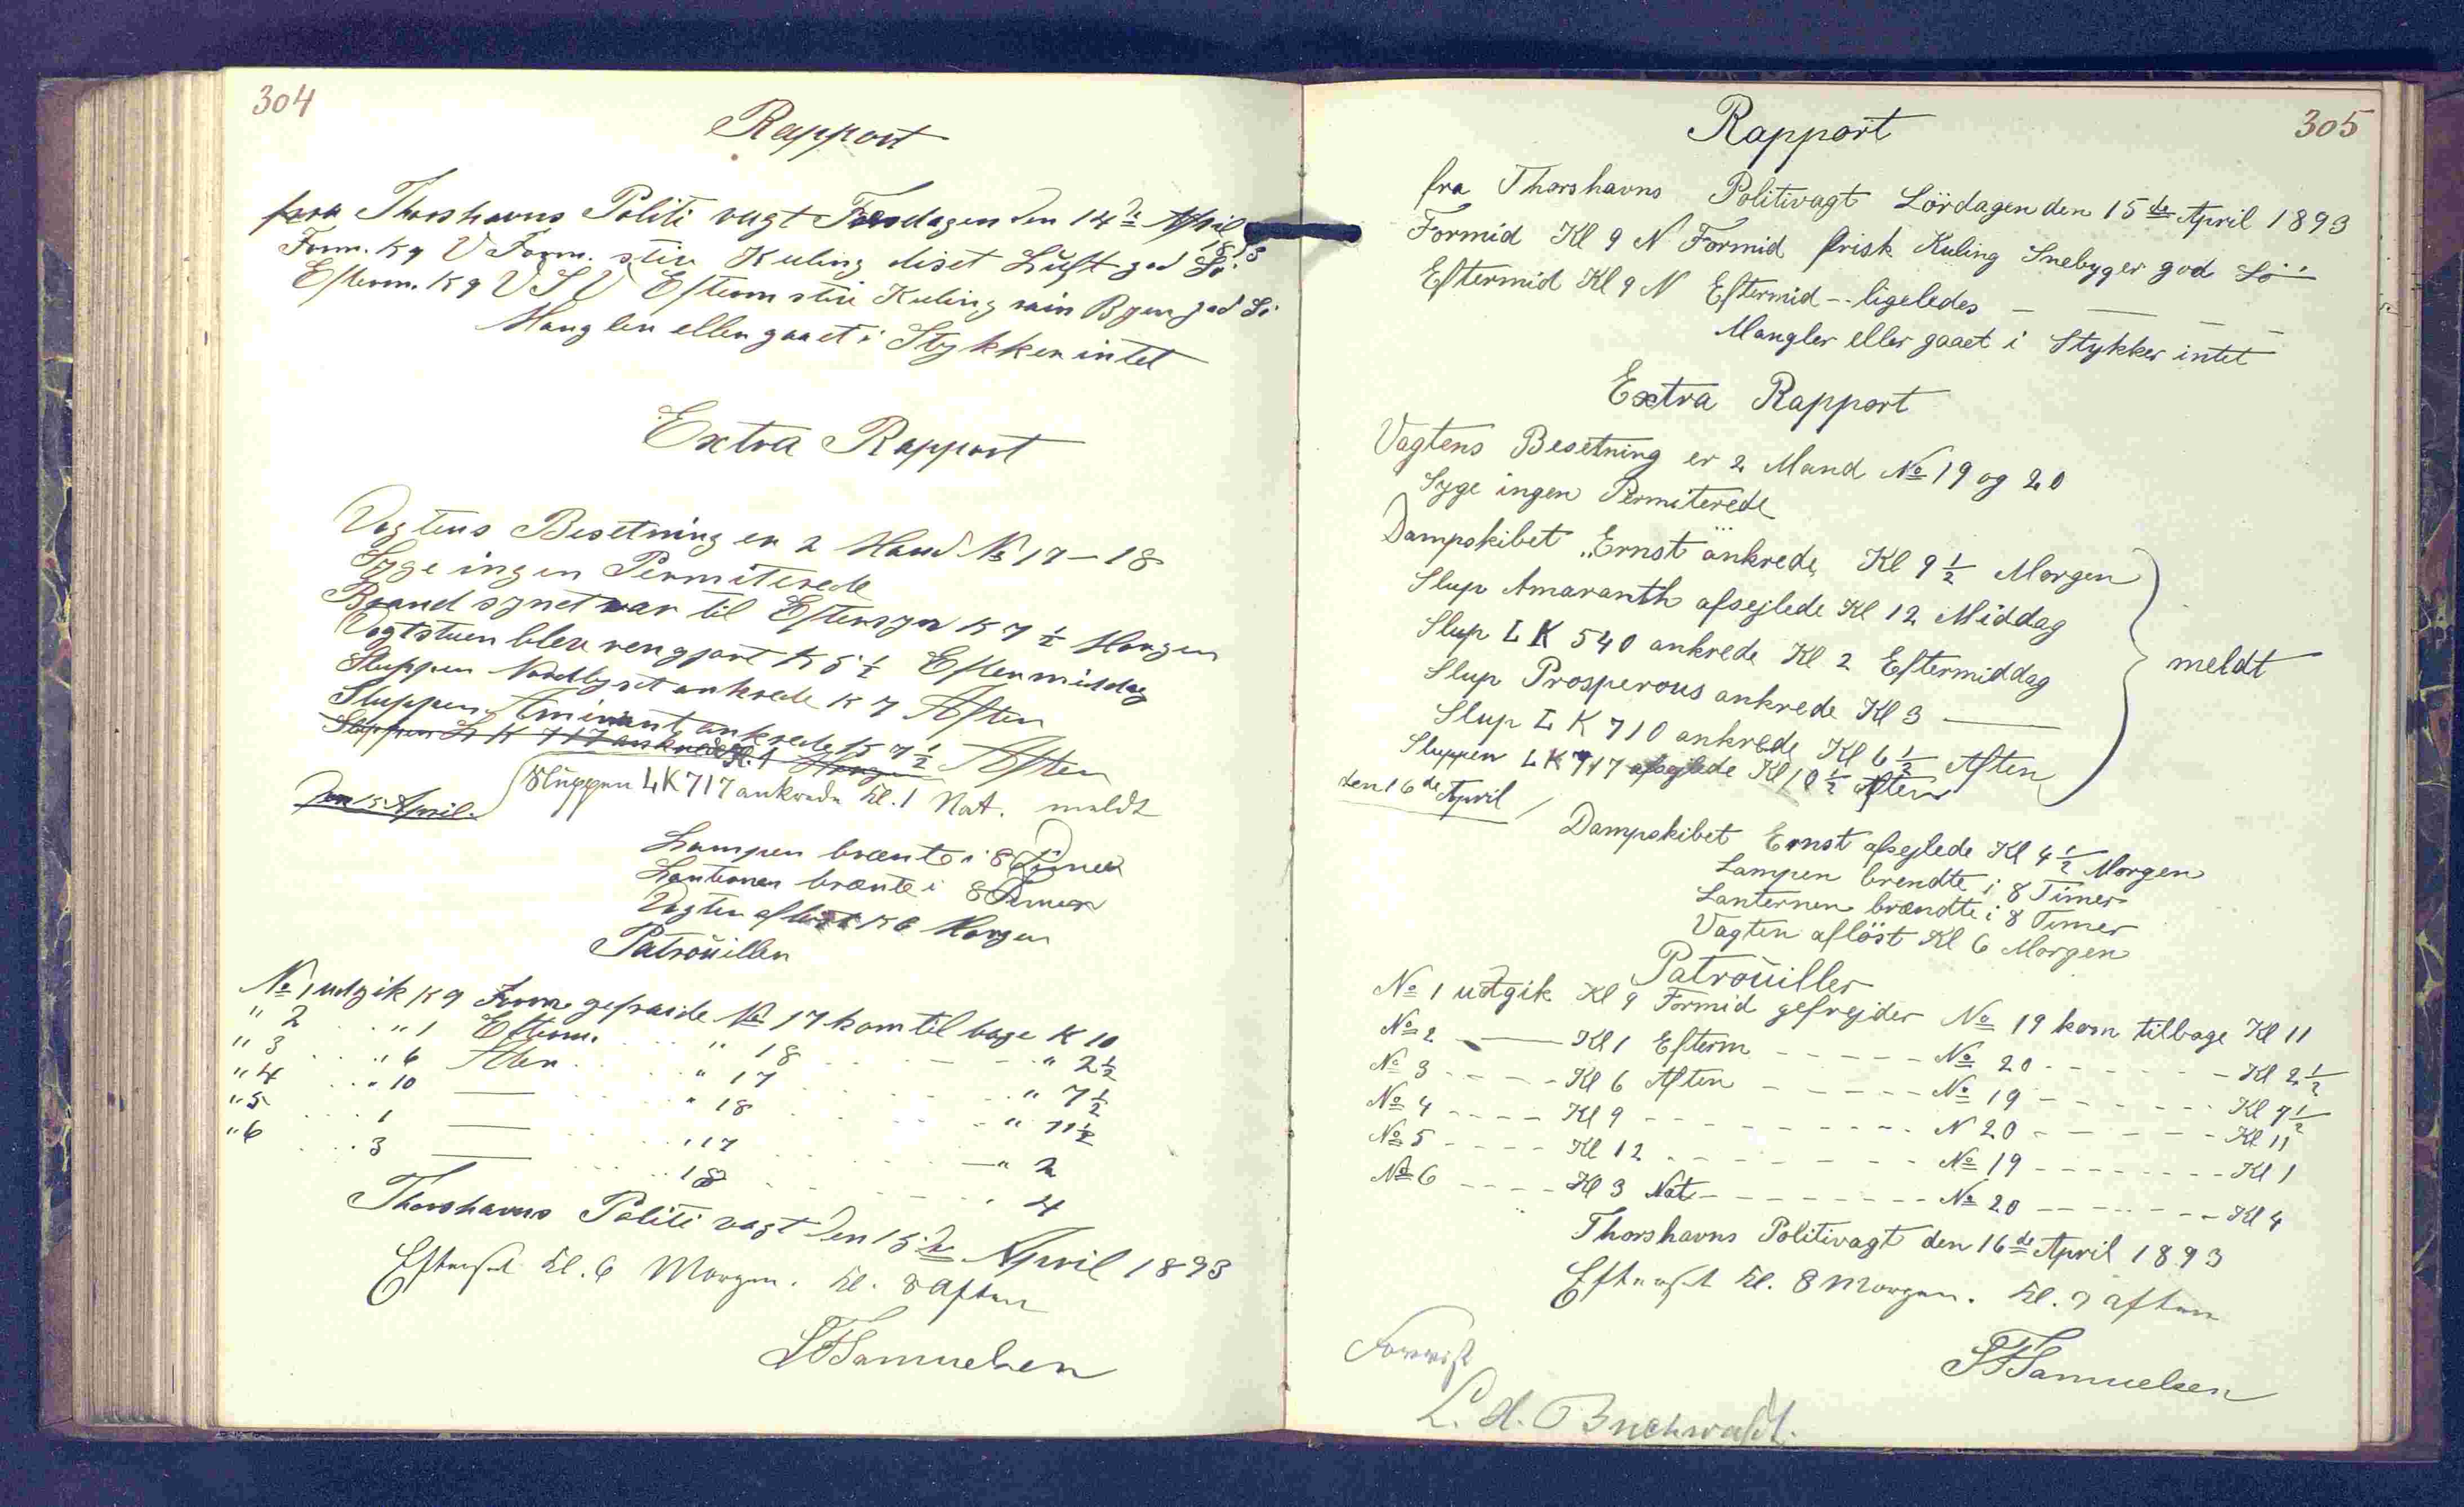 304
Rapport
fra Thorshavns Politi vagt den 14de April 1893
Form. K 9 V Form. stiv Kuling diset Luft god Sö
Efterm. K 9 VSV Efterm stiv Kuling Byer god Sö
Mangler eller gaaet i Stykker intet
Extra Rapport
Vagtens Besetning er 2 Mand No 17 – 18
Syge ingen Permiterede
Brand synet var til Eftersyn K 7 1/2 Morgen
Vagtstuen blev rengjort K 5 1/2 Eftermiddag
Sluppen Nordlyset ankrede K 7 Aften
Sluppen ankrede K 7 1/2 Aften
Sluppen LK 717 ankrede Kl. 1 Morgen
den 15 April.
Sluppen LK 717 ankrede Kl. 1 Nat. meldt
Lampen brænte i 8 Timer
Lanternen brænte i 8 Timer
Vagten aflöst K 6 Morgen
Patroüiller
No 1 udgik K 9 Form. gefraide No 17 kom til bage K 10
" 2 . . " 1 Efterm. . . " 18 . . . " 2 1/2
" 3 . . " 6 Aften . . " 17 . . . " 7 1/2
" 4 . . " 10 — . . " 18 . . . " 11 1/2
" 5 . . . 1 — . . " 17 . . . — " 2
" 6 . . . 3 — . . . 18 . . . " 4
Thorshavns Politi vagt den 15de April 1893
Efterset Kl. 6 Morgen. Kl. 8 Aften
SFSamuelsen
305
Rapport
fra Thorshavns Politivagt Lördagen den 15de April 1893
Formid Kl 9 N Formid frisk Kuling Snebyger god Sö
Eftermid Kl 9 N Eftermid -- ligeledes — — — —
Mangler eller gaaet i Stykker intet
Extra Rapport
Vagtens Besetning er 2 Mand No 19 og 20
Syge ingen Permiterede
Dampskibet „Ernst ankrede Kl 9 1/2 Morgen
Slup Amaranth afsejlede Kl 12 Middag
Slup LK 540 ankrede Kl 2 Eftermiddag
Slup Prosperous ankrede Kl 3 ——
meldt
Slup LK 710 ankrede Kl 6 1/2 Aften
Sluppen LK 717 afsejlede Kl 10 1/2 Aften
den 16de April
Dampskibet Ernst afsejlede Kl 4 1/2 Morgen
Lampen brendte i 8 Timer
Lanternen brændte i 8 Timer
Vagten aflöst Kl 6 Morgen
Patroüiller
No 1 udgik Kl 9 Formid gefrejder No 19 kom tilbage Kl 11
No 2 —— Kl 1 Efterm - - - - - No 20 - - - - - Kl 2 1/2
No 3 - - - - Kl 6 Aften - - - - - No 19 - - - - - Kl 7 1/2
No 4 - - - - Kl 9 - - - - - - - - N 20 - - - - - Kl 11
No 5 - - - - Kl 12 - - - - - - - No 19 - - - - - Kl 1
No 6 - - - - Kl 3 Nat - - - - - - No 20 - - - - - Kl 4
Thorshavns Politivagt den 16de April 1893
Efterset Kl. 8 Morgen. Kl. 9 aften
SFSamuelsen
Forevist
L. d. Buchwaldt.